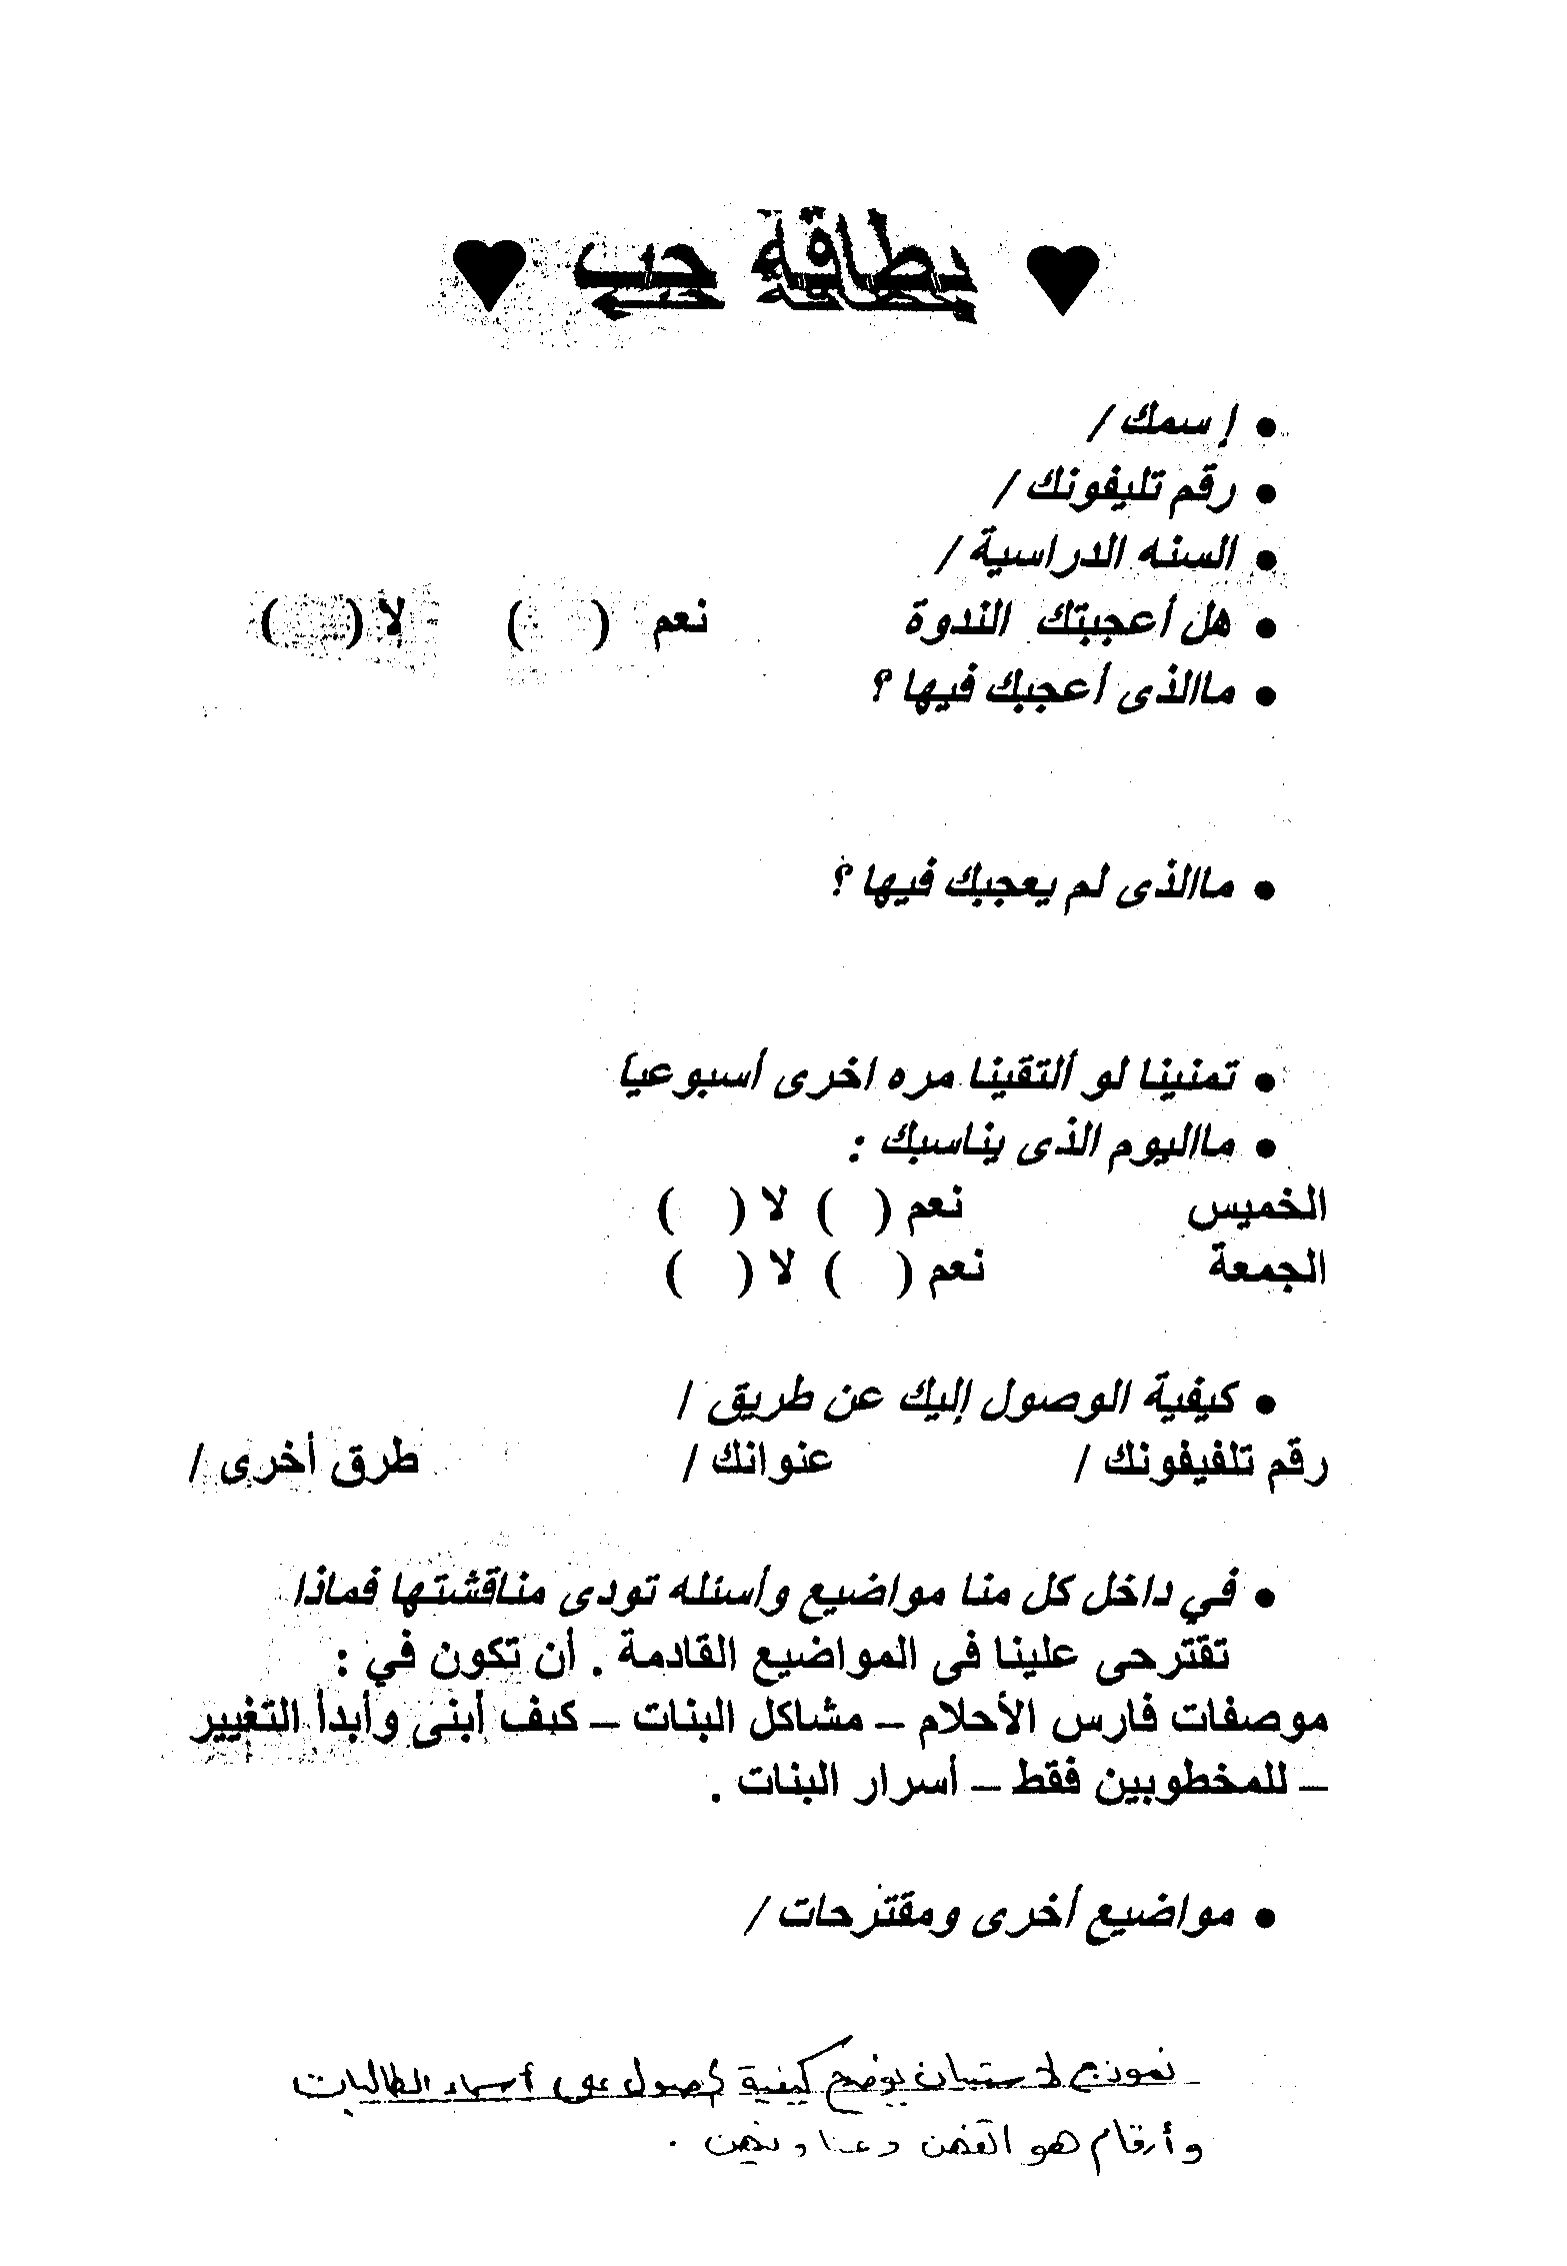 ♥ بطاقة حب ♥
• إسمك /
• رقم تليفونك /
• السنه الدراسية /
• هل أعجبتك الندوة نعم ( ) لا ( )
• ماالذى أعجبك فيها ؟
• ماالذى لم يعجبك فيها ؟
• تمنينا لو ألتقينا مره اخرى أسبوعيا
• مااليوم الذى يناسبك :
الخميس نعم ( ) لا ( )
الجمعة نعم ( ) لا ( )
• كيفية الوصول إليك عن طريق /
رقم تلفيفونك / عنوانك / طرق أخرى /
• في داخل كل منا مواضيع وأسئله تودى مناقشتها فماذا
تقترحى علينا فى المواضيع القادمة . أن تكون في :
موصفات فارس الأحلام – مشاكل البنات – كيف أبنى وأبدأ التغيير
– للمخطوبين فقط – أسرار البنات .
• مواضيع أخرى ومقترحات /
- نموذج لاستبيان يوضح كيفية الحصول على أسماء الطالبات
وأرقام هواتفهن وعناوينهن .